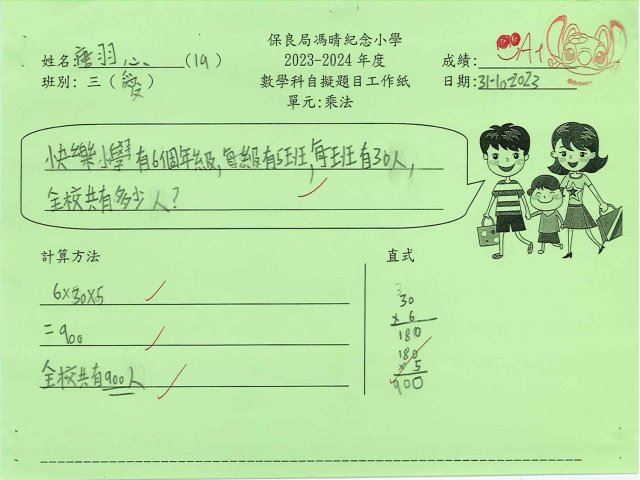 保良局馮晴紀念小學
2023-2024 年度
數學科自擬題目工作紙
單元:乘法
姓名 唐羽心 (19)
班別: 三 (愛)
成績: A+
日期: 31-10-2023
快樂小學有6個年級,每級有5班,每班有30人,
全校共有多少人?
計算方法
6×30×5
=900
全校共有900人
直式
30
× 6
180
180
× 5
900